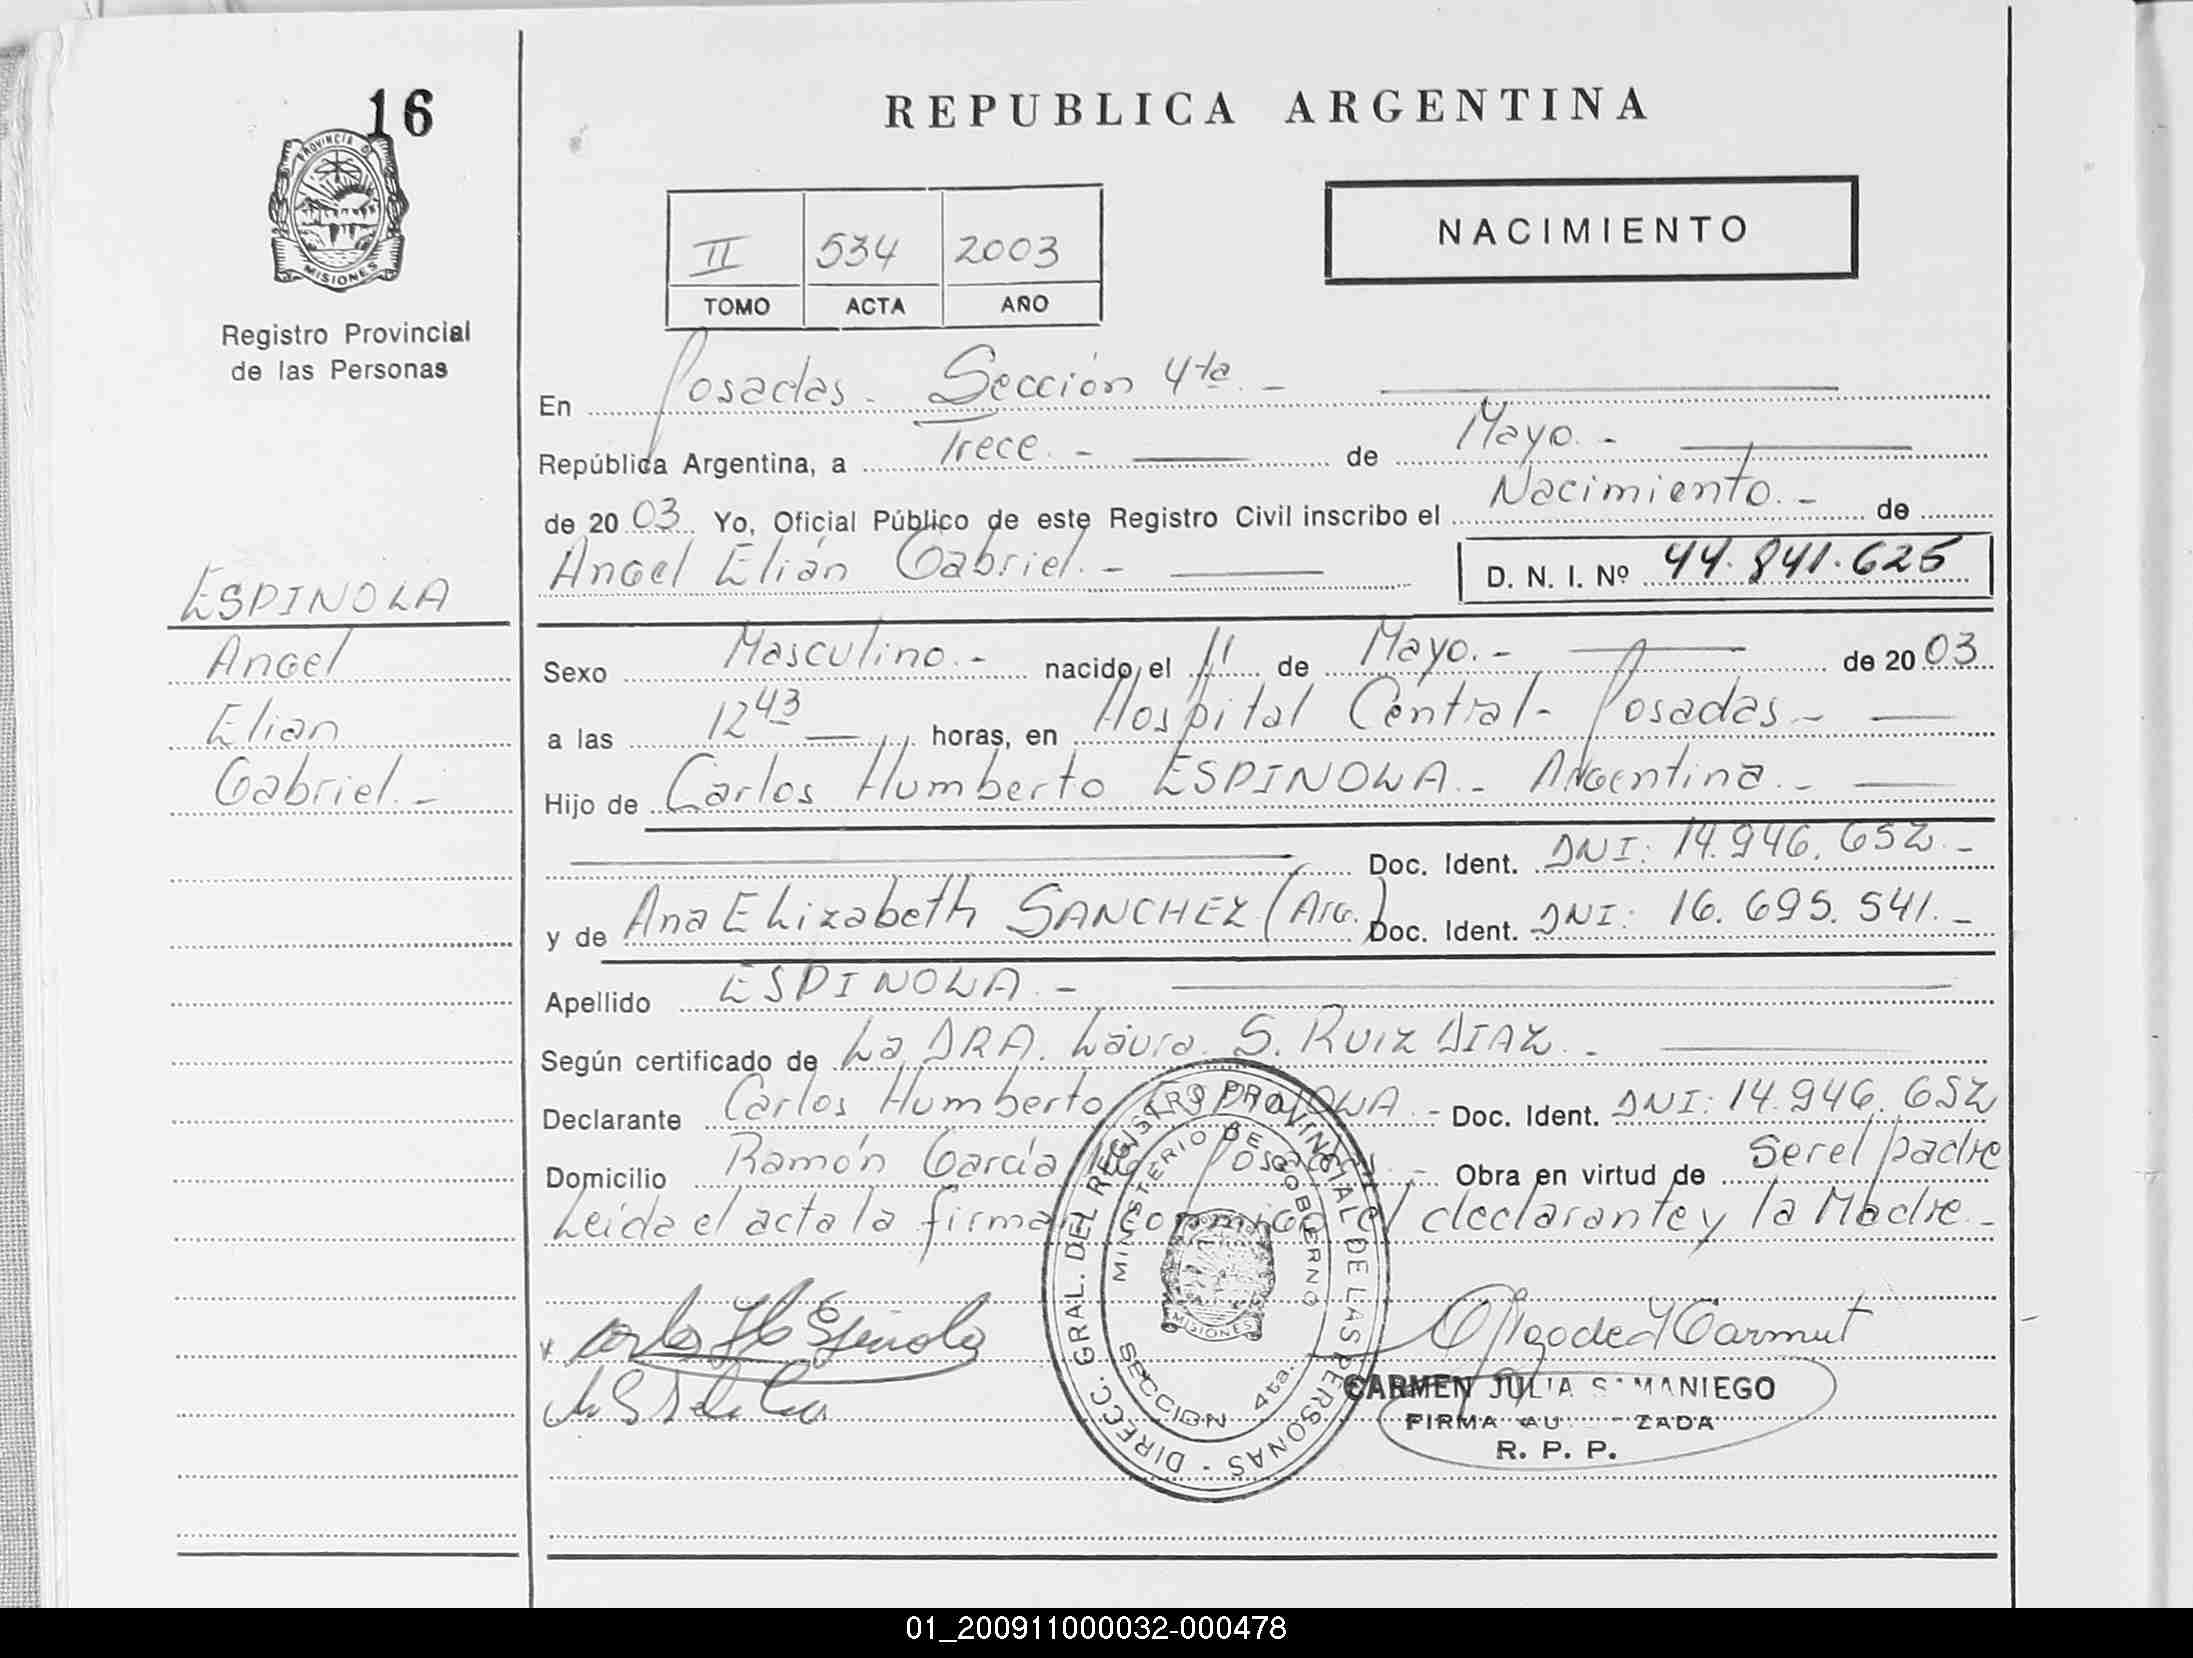 16
PROVINCIA DE
MISIONES
Registro Provincial
de las Personas
ESPINOLA
Angel
Elian
Gabriel.-
REPUBLICA ARGENTINA
NACIMIENTO
II 534 2003
TOMO ACTA AÑO
En Posadas. Sección 4ta.-
República Argentina, a Trece.- de Mayo.-
de 20 03 Yo, Oficial Público de este Registro Civil inscribo el Nacimiento.- de
Angel Elián Gabriel.- D. N. I. Nº 44.841.625
Sexo Masculino.- nacido el 11 de Mayo.- de 20 03
a las 12 43 horas, en Hospital Central- Posadas.-
Hijo de Carlos Humberto ESPINOLA.- Argentina.-
Doc. Ident. DNI: 14.946.652.-
y de Ana Elizabeth SANCHEZ (Arg.) Doc. Ident. DNI: 16.695.541.-
Apellido ESPINOLA.-
Según certificado de La DRA. Laura S. RUIZ DIAZ.-
Declarante Carlos Humberto ESPINOLA.- Doc. Ident. DNI: 14.946.652
Domicilio Ramón García Posadas.- Obra en virtud de Ser el padre
Leída el acta la firman conmigo el declarante y la Madre.-
DIRECC. GRAL. DEL REGISTRO PROVINCIAL DE LAS PERSONAS -
MINISTERIO DE GOBIERNO
MISIONES
SECCION 4ta.
CARMEN JULIA SAMANIEGO
FIRMA AUTORIZADA
R. P. P.
01_200911000032-000478